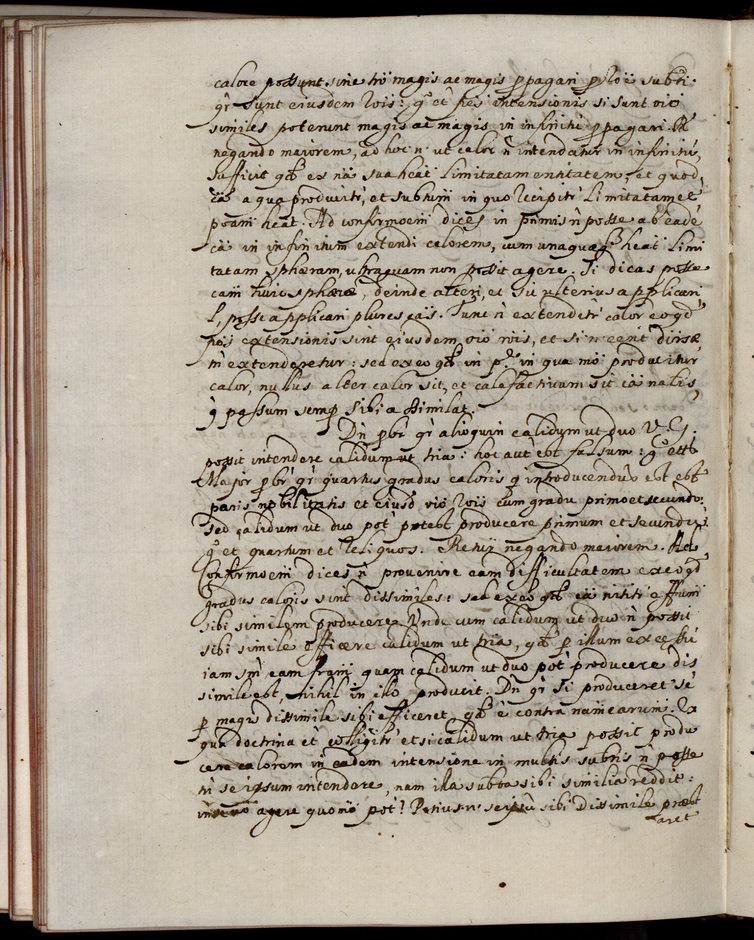 calore possunt sine trō magis ac magis ꝓpagari
qr̄ sunt eiusdem rōis: gͦ et hēs intensionis si sunt oīo
similes poterunt magis ac magis in infinitū ꝓpagari. R̄
negando maiorem, ad hoc n̄ ut calor n̄ intendatur in infinitū,
sufficit qđ ex nā sua heāt limitatam entitatem, et quod
cā a qua produciťr, et subtum in quo recipitr̄ limitatam et
poām heāt. Ad confirmōem dices in primis n̄ posse ab eadē
cā in infinitum extendi calorem, cum unaquæqȝ heāt limi
tatam sphæram, ultra quam non possit agere. Si dicas posse
cam huic sphæræ, deinde alteri, et sic ulterius applicari
l, posse applicari plures cās. Tunc n̄ extendetr̄ calor eo qđ
extensionis sint eiusdem oīo rōis, et si n̄ eēnt
n̄ extenderetur: sed ex eo qđ in in qua mō producitur
calor, nullus alter calor sit, et calefactivum sit cā nālis,
q̄ passum semꝑ sibi assimilat.
Dn̄ ꝓbr̄ qr̄ alioquin calidum ut duo V. G.
possit intendere calidum ut tria: hoc aūt est falsum: gͦ
Major ꝓbr̄ qr̄ quartus gradus caloris q̄ introducendus est est
paris nobilitatis et eiusđ oīo rōis cum gradu primo et secundo:
sed calidum ut duo pot̄ potest producere primum et secundū:
gͦ et quartum et reliquos. negando maiorem. Ad
Confirmōem dices n̄ provenire eam difficultatem ex eo qđ
gradus caloris sint dissimiles: sed ex eo qđ cā nititr̄ effum
sibi similem producere. Unde cum calidum ut duo n̄ possit
sibi simile efficere calidum ut tria, qđ ꝑ illum
iam sm̄ eam quam calidum ut duo pot̄ producere dis
simile est, nihil in illo producit. Dn̄ qr̄ si produceret sē
ꝑ magis dissimile sibi efficeret, qđ ē contra nām earum. Ex
qua doctrina et colligitr̄ et si calidum ut tria possit produ
cere calorem in eadem intensione in multis subtis n̄ posse
n̄ se ipsum intendere, nam illa subta sibi similia reddit:
in se vo agere quomō pot̄? Potius n̄ se ipsū sibi dissimile præst
aret